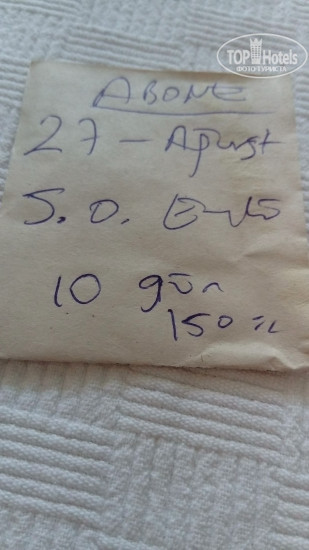 TOPHotels
ФОТО ТУРИСТА
ABONE
27 - Ağust
S. O.
10 gün
150 TL